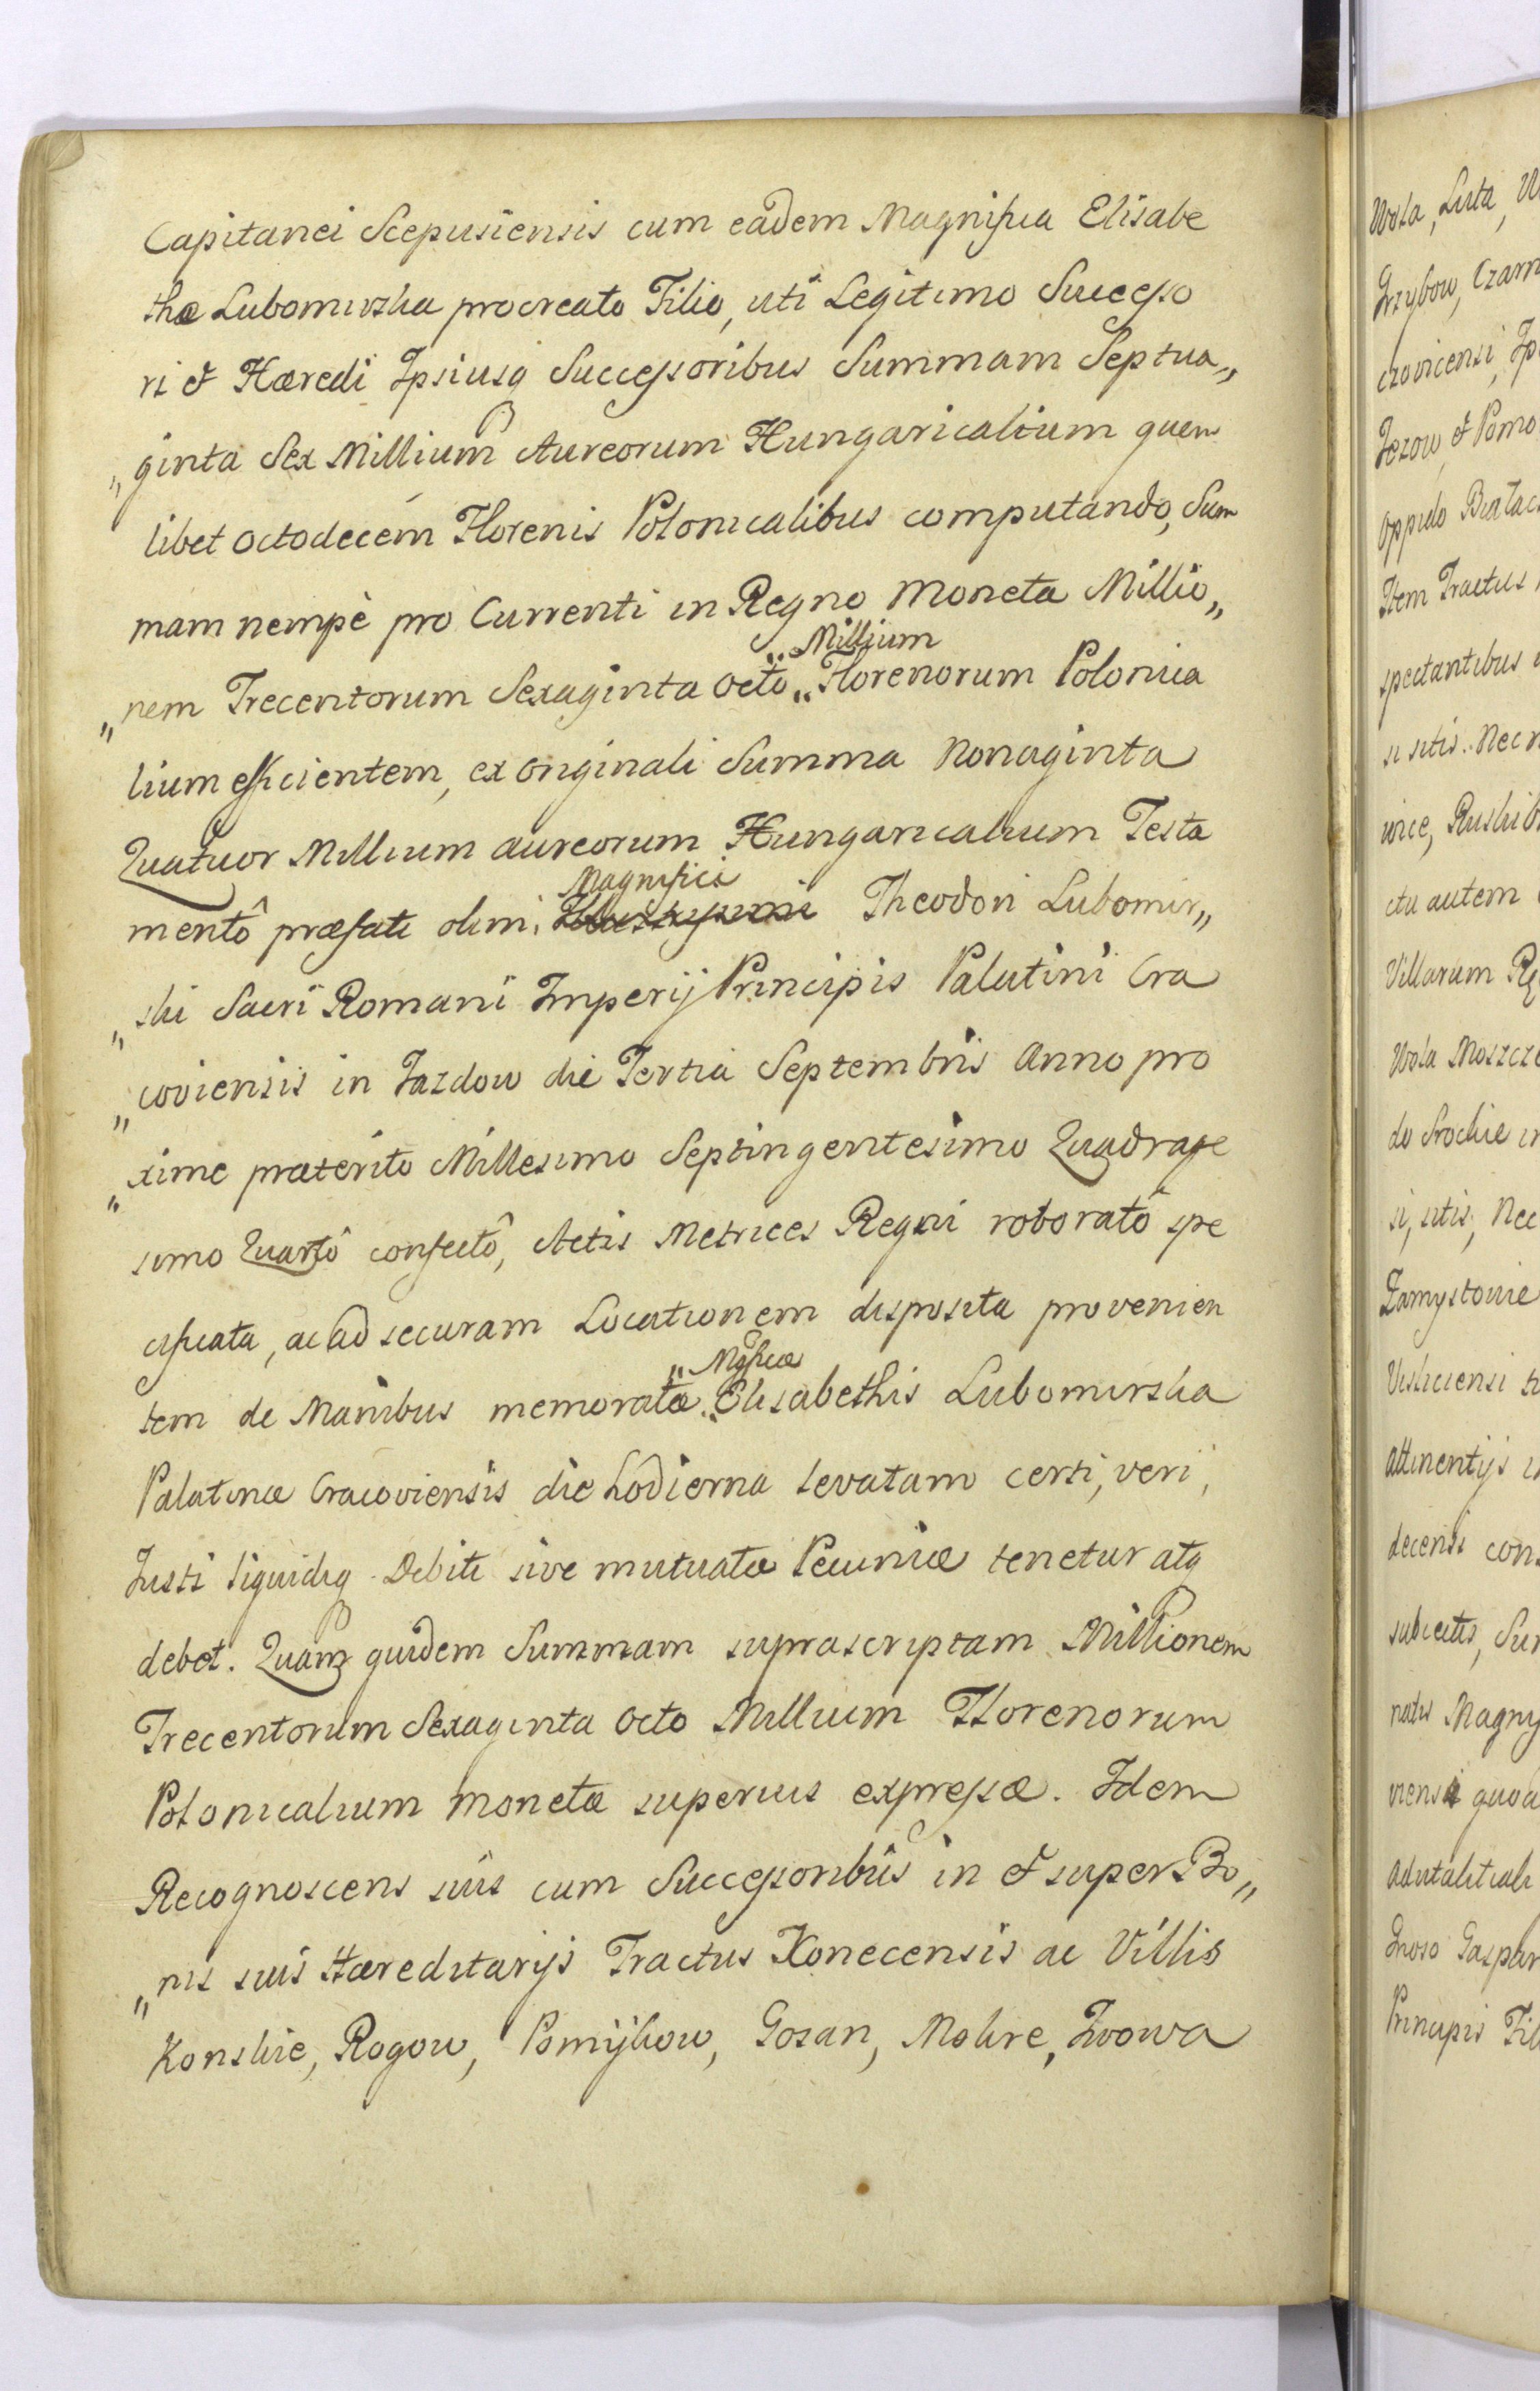 Capitanei Scepusiensis cum eadem Magnifica Elisabe
tha Lubomirska procreato Filio, uti Legitimo Successo
ri & Hæredi Ipsiusq Successoribus Summam Septua„
„ginta Sex Millium Aureorum Hungaricalium quem
libet octodecem Florenis Polonicalibus computando, Sum
mam nempè pro Currenti in Regno Moneta Millio„
„ Millium
„nem Trecentorum Sexaginta octo „ Florenorum Polonica
lium efficientem, ex originali Summa Nonaginta
Quatuor Millium aureorum Hungaricalium Testa
Magnifici
mentô præfati olim Illustrissimi Theodori Lubomir„
„ski Sacri Romani Imperij Principis Palatini Cra
„coviensis in Jazdow die Tertia Septembris Anno pro
„xime præterito Millesimo Septingentesimo Quadrage
simo Quartô confectô, Actis Metrices Regni roboratô spe
cificata, ac ad securam Locationem disposita provenien
„ Mgficæ
tem de Manibus memoratæ „ Elisabethis Lubomirska
Palatinæ Cracoviensis die hodierna levatam certi, veri,
Justi liquidiq Debiti sive mutuatæ Pecuniæ tenetur atq
debet. Quam quidem Summam suprascriptam Millionem
Trecentorum Sexaginta octo Millium Florenorum
Polonicalium monetæ superius expressæ. Idem
Recognoscens suis cum Successoribus in & super Bo„
„nis suis Hæreditarijs Tractus Konecensis ac Villis
Konskie, Rogow, Pomÿkow, Gosan, Mokre, Izvowa
Wola, Luta,
Grzybow, Czarn
czovicensi, Ip
Jezow & Pomo
oppido
Item Tractus
spectantibus
si sitis. Nec n
wice,
ctu autem
Villarum
Wola Moszcze
do Srockie in
si, sitis, Nec
Zamystowie
Visliciensi
attinentijs
decensi con
subiectis, Sum
natis Magny
viensi quoa
advitalitali
Gnoso Gaspar
Principis Fil